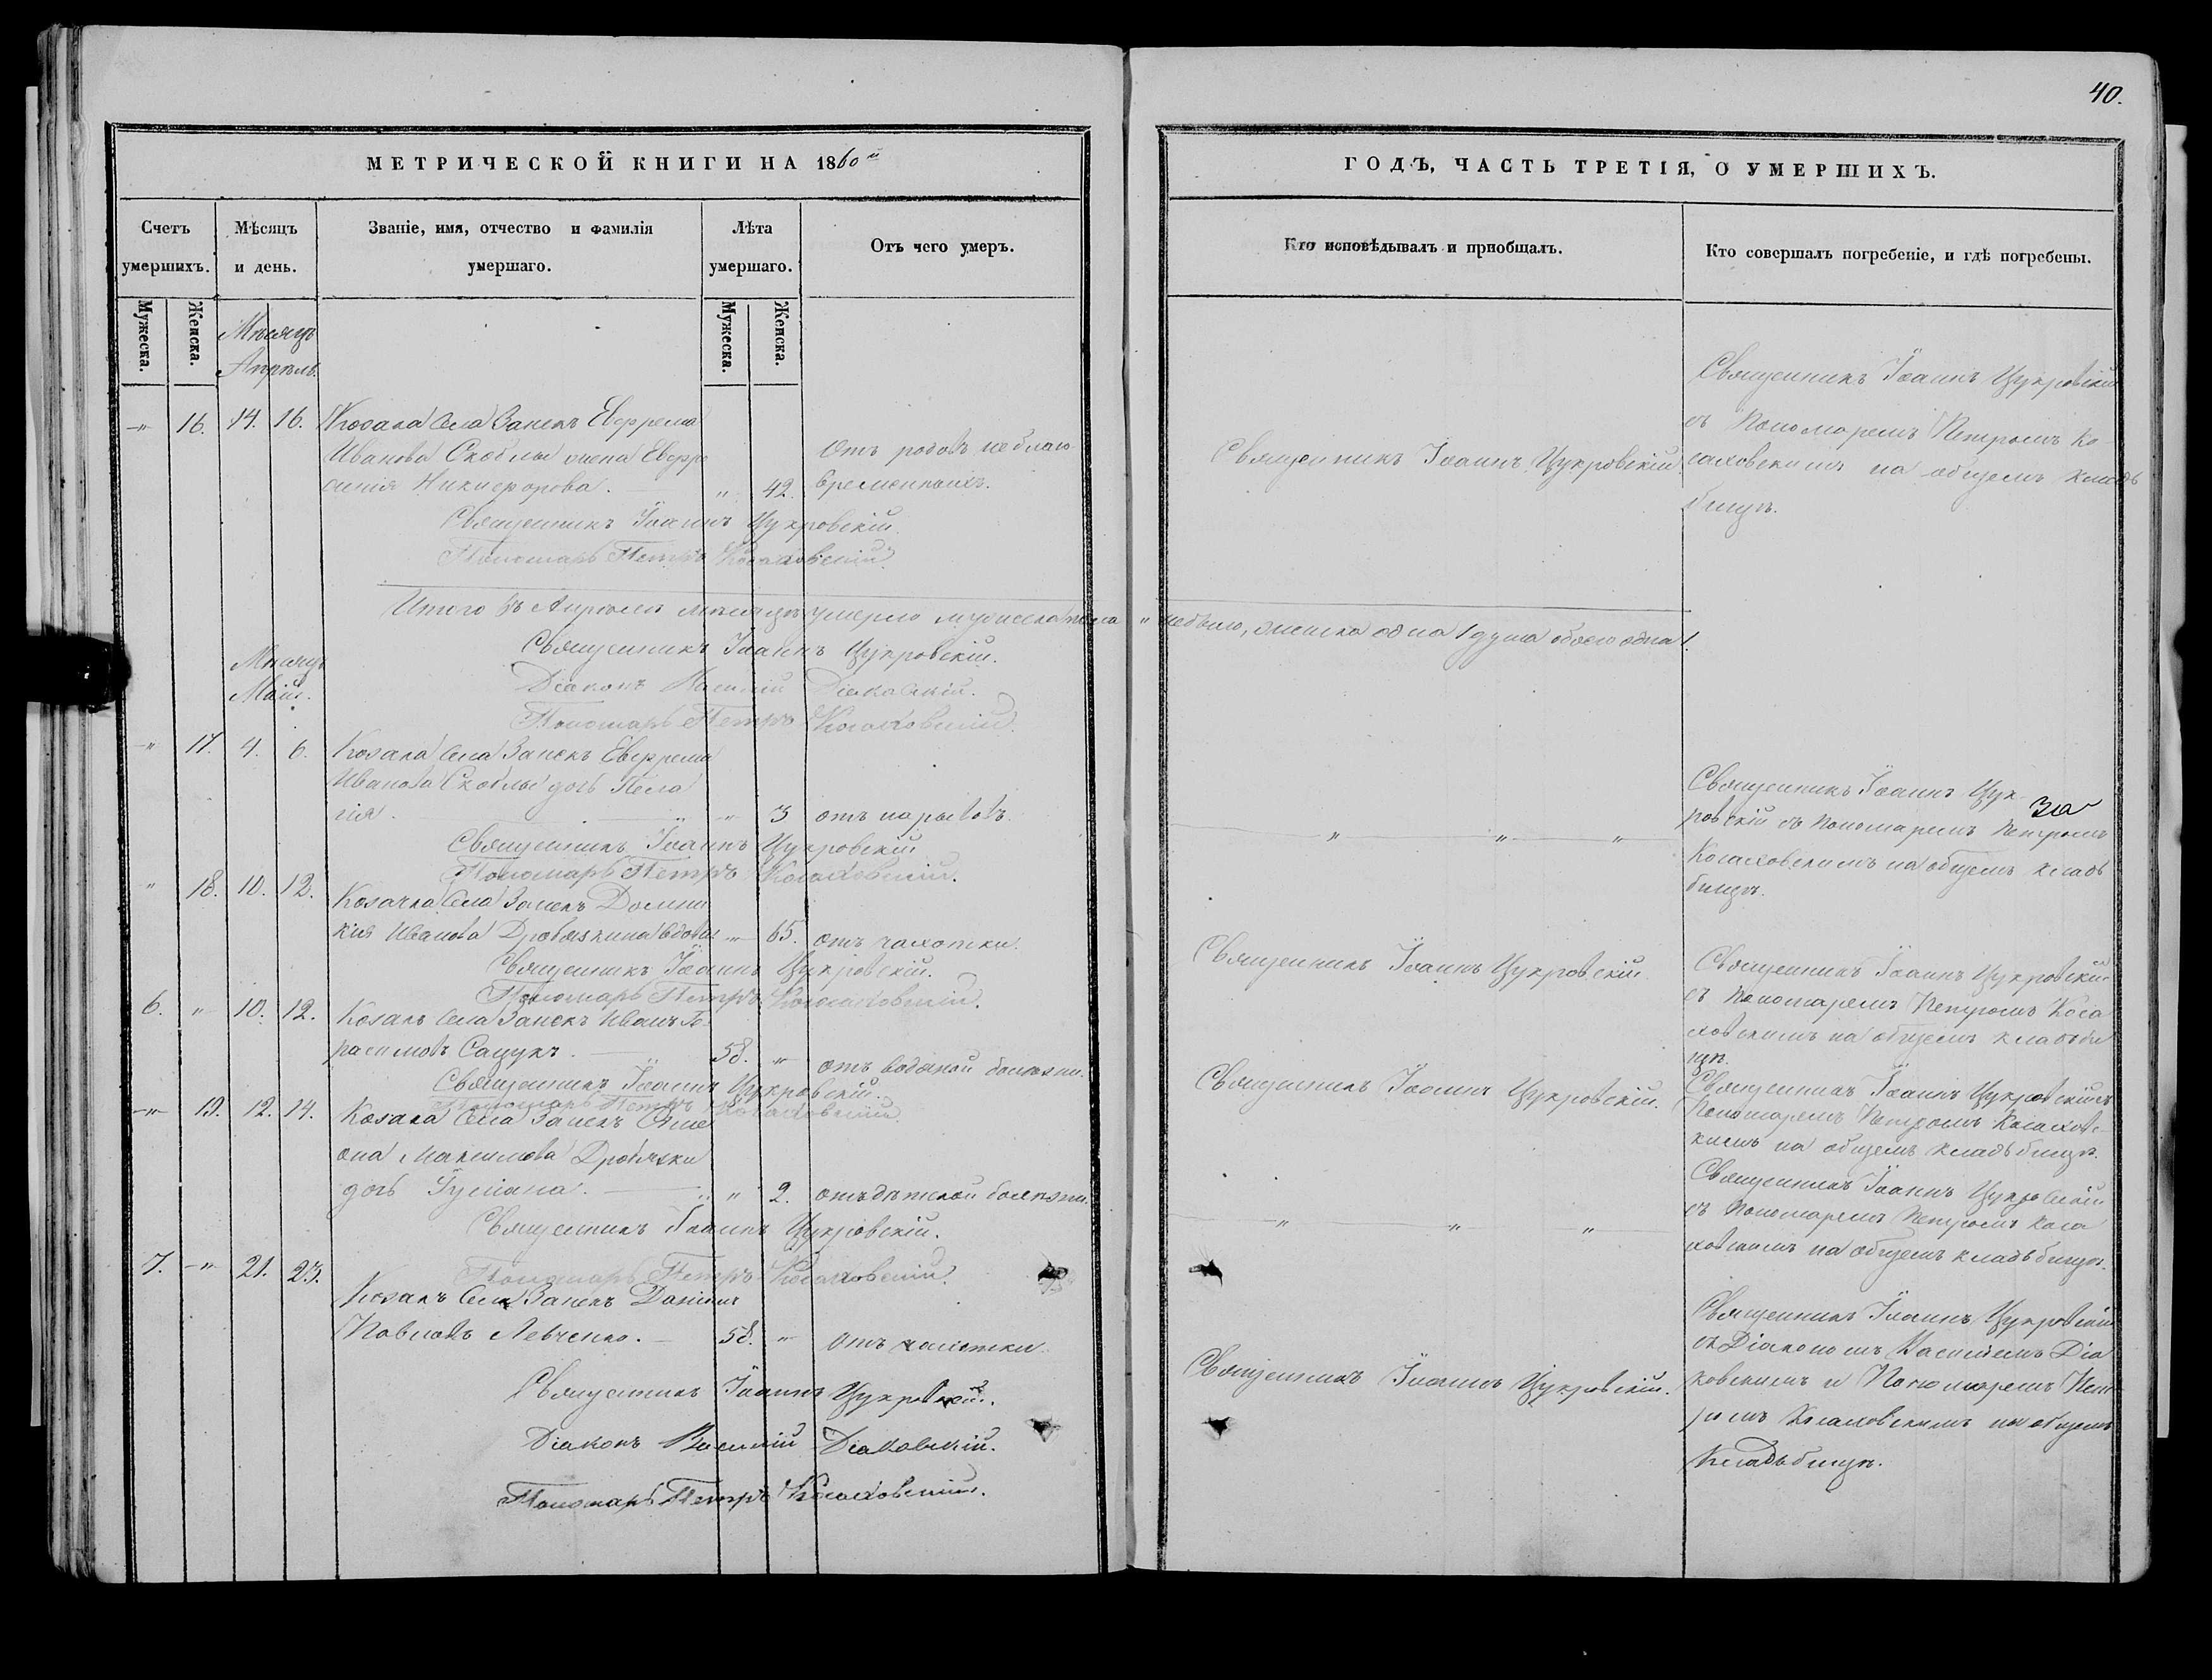 40.
МЕТРИЧЕСКОЙ КНИГИ НА 1860й
ГОДЪ, ЧАСТЬ ТРЕТІЯ, О УМЕРШИХЪ.
Счетъ умершихъ.
Мѣсяцъ и день.
Званіе, имя, отчество и фамилія умершаго.
Лѣта умершаго.
Отъ чего умеръ.
Кто исповѣдывалъ и пріобщалъ.
Кто совершалъ погребеніе, и гдѣ погребены.
Мужеска.
Женска.
Мужеска.
Женска.
Мѣсяцъ
Апрѣль.
-"- 16. 14. 16. Козака села Заисекъ Евфрема
Иванова Скоблы жена Евфро
синія Никифорова. " 42.
Отъ родовъ неблаго
временныхъ.
Священникъ Іоаннъ Цукровскій
Священникъ Іоаннъ Цукровскій
съ Пономаремъ Петромъ Ко
саховскимъ на общемъ кладъ
бищѣ.
Священникъ Іоаннъ Цукровскій.
Пономарь Петръ Косаховскій.
Итого въ Апрѣлѣ мѣсяцѣ умерло мужеска пола " небыло, женска одна 1 душа обоего одна 1.
Священникъ Іоаннъ Цукровскій.
Діаконъ Василій Діаковскій.
Пономарь Петръ Косаховскій.
Мѣсяцъ
Май.
" 17. 4. 6. Козака села Заисекъ Евфрема
Иванова Скоблы дочь Пела
гія. " 3 отъ нарывовъ.
" " "
Священникъ Іоаннъ Цук
ровскій съ Пономаремъ Петромъ
Косаховскимъ на общемъ кладъ
бищѣ.
Священникъ Іоаннъ Цукровскій
Пономарь Петръ Косаховскій.
" 18. 10. 12. Козачка села Заисекъ Домни
кія Иванова Дробязкина вдова " 65. отъ чахотки.
Священникъ Іоаннъ Цукровскій.
Священникъ Іоаннъ Цукровскій
съ Пономаремъ Петромъ Коса
ховскимъ на общемъ кладъби
щѣ.
Священникъ Іоаннъ Цукровскій.
Пономарь Петръ Косаховскій.
6. " 10. 12. Козакъ села Заисекъ Иванъ Ге
расимовъ Сацукъ. 58. " отъ водяной болѣзни.
Священникъ Іоаннъ Цукровскій.
Священникъ Іоаннъ Цукровскій съ
Пономаремъ Петромъ Косаховс
кимъ на общемъ кладъбищѣ.
Священникъ Іоаннъ Цукровскій.
Пономарь Петръ Косаховскій.
-"- 19. 12. 14. Козака села Заисекъ Симе
она Максимова Дробязки
дочь Іуліана. " 2. отъ дѣтской болѣзни.
" " "
Священникъ Іоаннъ Цукровскій
съ Пономаремъ Петромъ Коса
ховскимъ на общемъ кладъбищѣ.
Священникъ Іоаннъ Цукровскій.
Пономарь Петръ Косаховскій.
7. -"- 21. 23. Козакъ села Заисекъ Даніилъ
Павловъ Левченко. 58. " Отъ чахотки.
Священникъ Іоаннъ Цукровскій.
Священникъ Іоаннъ Цукровскій
съ Діакономъ Василіемъ Діа
ковскимъ и Пономаремъ Пет
ромъ Косаховскимъ на общемъ
кладъбищѣ.
Священникъ Іоаннъ Цукровскій.
Діаконъ Василій Діаковскій.
Пономарь Петръ Косаховскій.